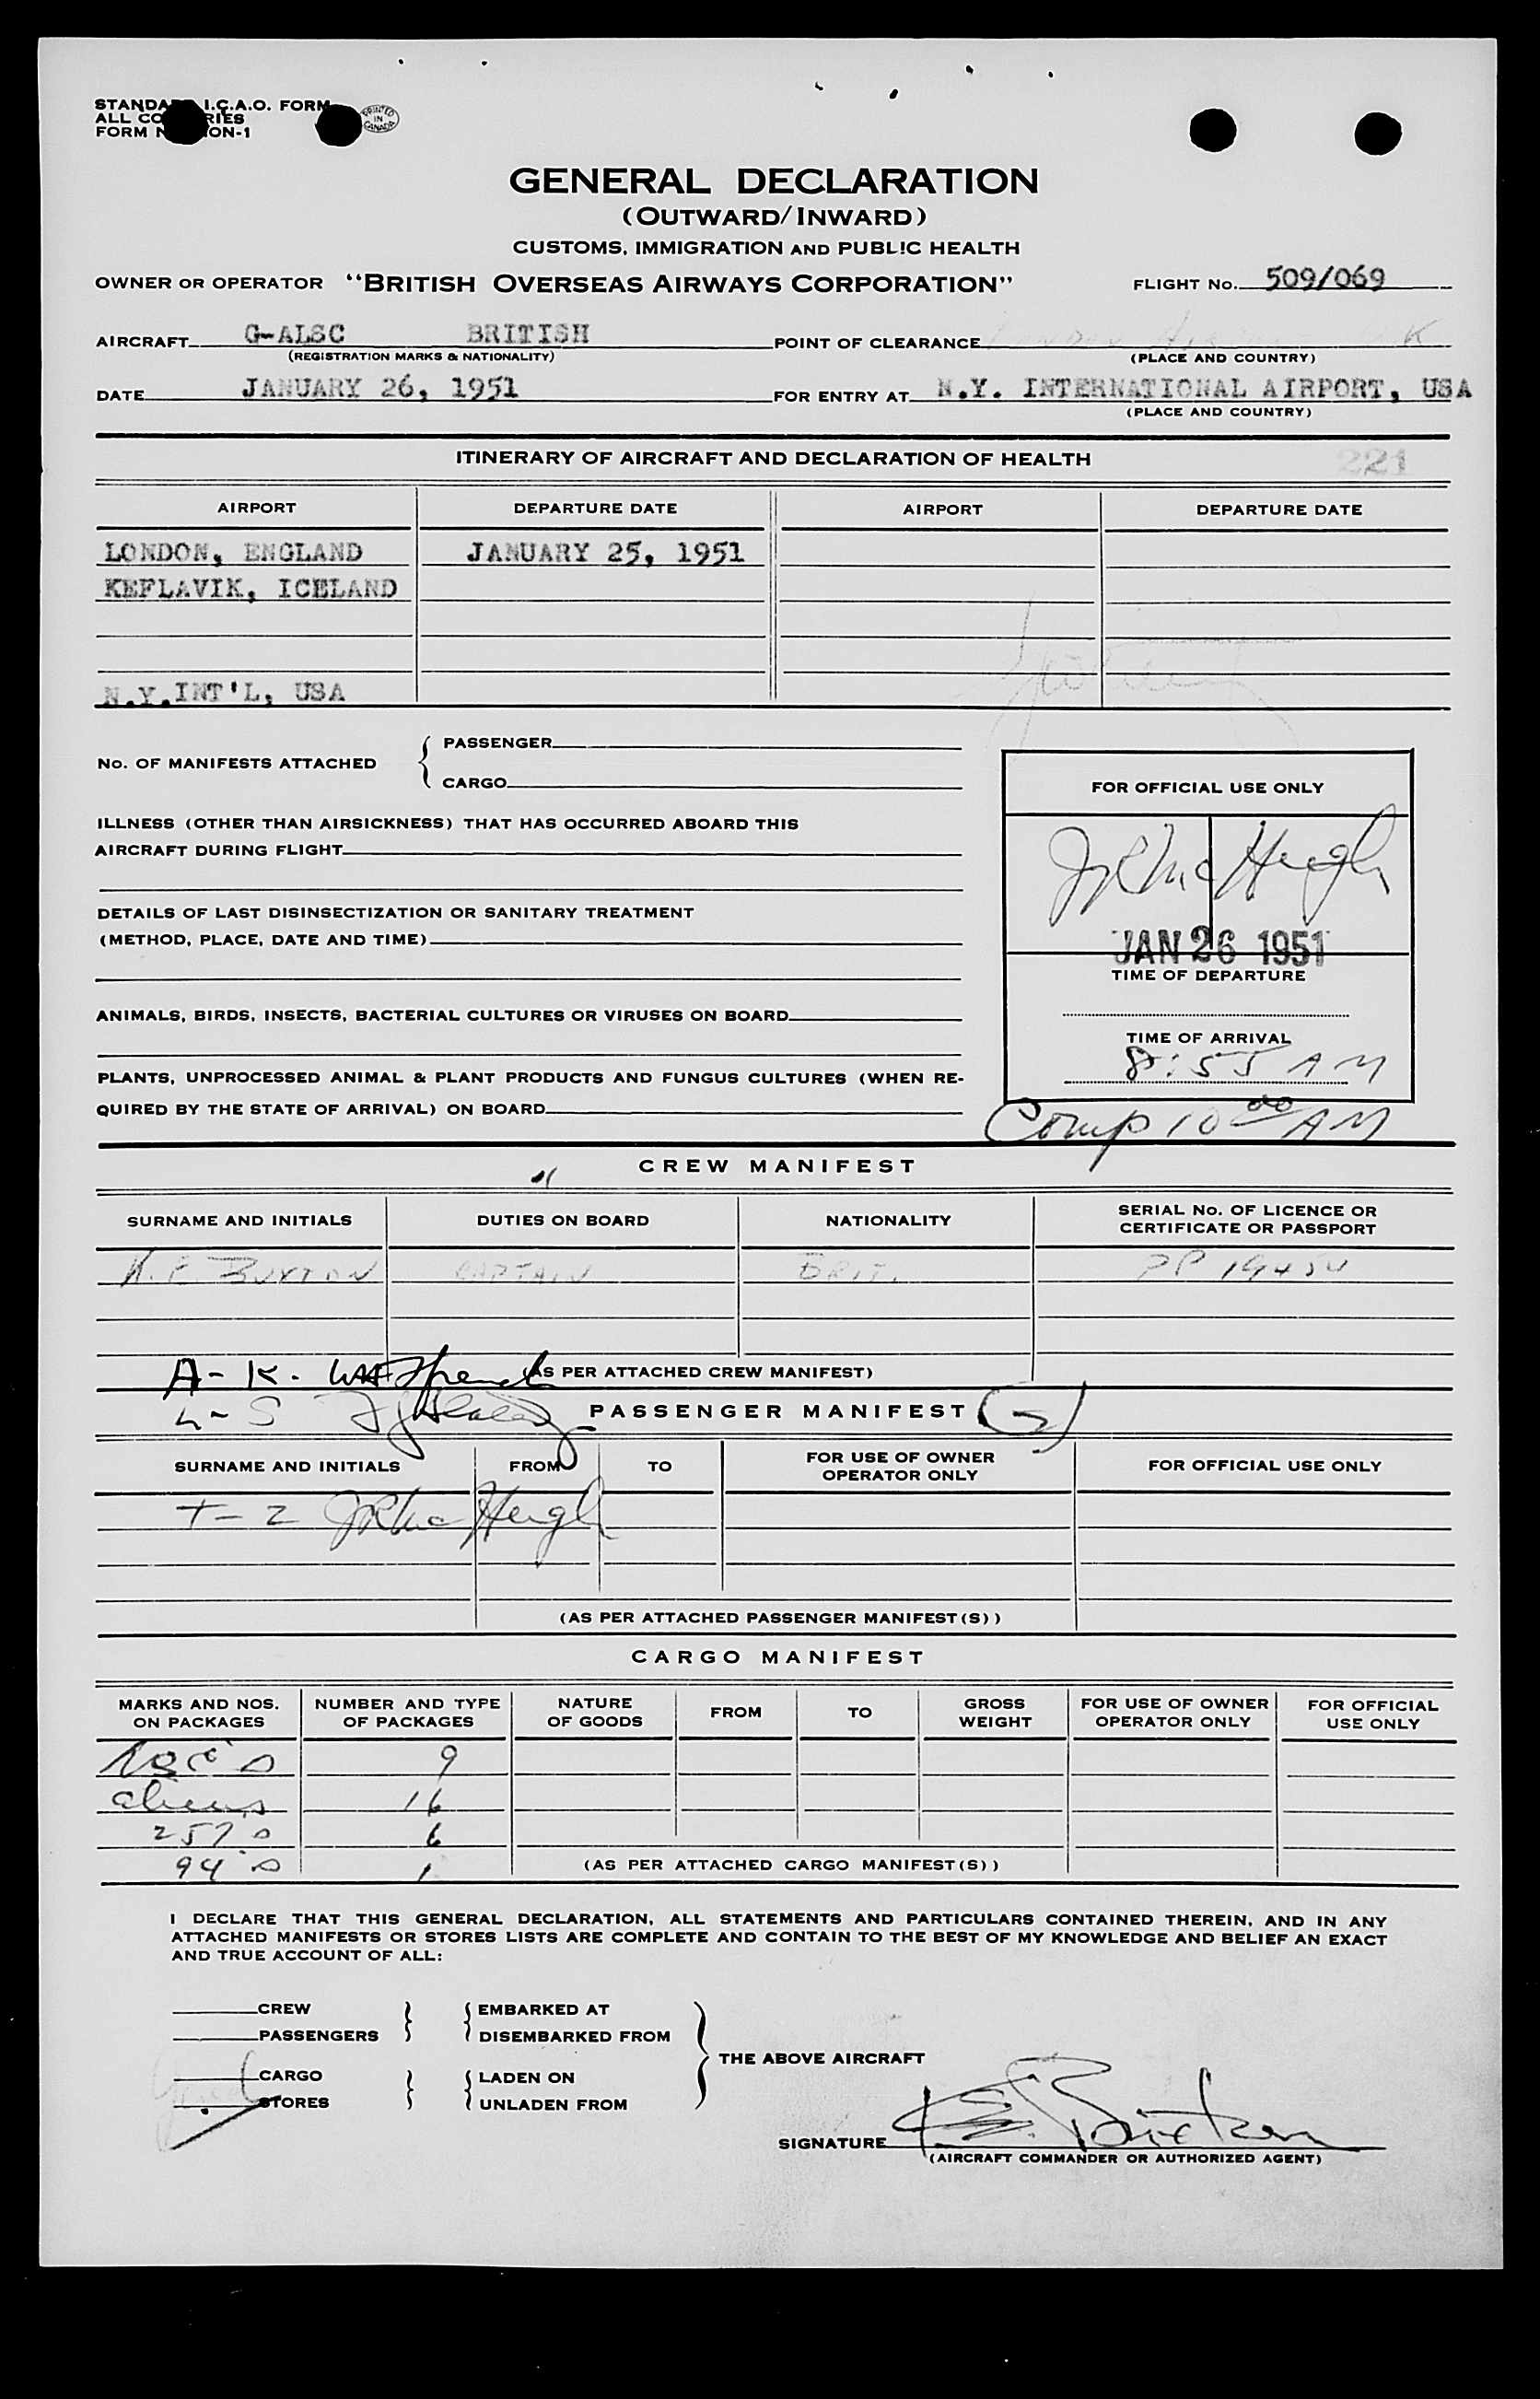 STANDARD I.C.A.O. FORM
ALL COUNTRIES
FORM ON-1
PRINTED IN CANADA
GENERAL DECLARATION
(OUTWARD/INWARD)
CUSTOMS, IMMIGRATION AND PUBLIC HEALTH
OWNER OR OPERATOR "BRITISH OVERSEAS AIRWAYS CORPORATION" FLIGHT No. 509/069
AIRCRAFT G-ALSC BRITISH POINT OF CLEARANCE
(REGISTRATION MARKS & NATIONALITY) (PLACE AND COUNTRY)
DATE JANUARY 26, 1951 FOR ENTRY AT N.Y. INTERNATIONAL AIRPORT, USA
(PLACE AND COUNTRY)
ITINERARY OF AIRCRAFT AND DECLARATION OF HEALTH 221
AIRPORT DEPARTURE DATE AIRPORT DEPARTURE DATE
LONDON, ENGLAND JANUARY 25, 1951
KEFLAVIK, ICELAND
N.Y.INT'L, USA
No. OF MANIFESTS ATTACHED { PASSENGER
CARGO
FOR OFFICIAL USE ONLY
ILLNESS (OTHER THAN AIRSICKNESS) THAT HAS OCCURRED ABOARD THIS
AIRCRAFT DURING FLIGHT
DETAILS OF LAST DISINSECTIZATION OR SANITARY TREATMENT
(METHOD, PLACE, DATE AND TIME)
JAN 26 1951
TIME OF DEPARTURE
ANIMALS, BIRDS, INSECTS, BACTERIAL CULTURES OR VIRUSES ON BOARD
TIME OF ARRIVAL
8:55 AM
PLANTS, UNPROCESSED ANIMAL & PLANT PRODUCTS AND FUNGUS CULTURES (WHEN RE-
QUIRED BY THE STATE OF ARRIVAL) ON BOARD
Comp 10 00 AM
CREW MANIFEST
SURNAME AND INITIALS DUTIES ON BOARD NATIONALITY SERIAL No. OF LICENCE OR
CERTIFICATE OR PASSPORT
K.E. BUXTON CAPTAIN BRIT. PP 19454
A-K. (AS PER ATTACHED CREW MANIFEST)
L-S PASSENGER MANIFEST
SURNAME AND INITIALS FROM TO FOR USE OF OWNER
OPERATOR ONLY FOR OFFICIAL USE ONLY
T-Z JR McHugh
(AS PER ATTACHED PASSENGER MANIFEST(S))
CARGO MANIFEST
MARKS AND NOS.
ON PACKAGES NUMBER AND TYPE
OF PACKAGES NATURE
OF GOODS FROM TO GROSS
WEIGHT FOR USE OF OWNER
OPERATOR ONLY FOR OFFICIAL
USE ONLY
USC's 9
aliens 16
257's 6
94's 1
(AS PER ATTACHED CARGO MANIFEST(S))
I DECLARE THAT THIS GENERAL DECLARATION, ALL STATEMENTS AND PARTICULARS CONTAINED THEREIN, AND IN ANY
ATTACHED MANIFESTS OR STORES LISTS ARE COMPLETE AND CONTAIN TO THE BEST OF MY KNOWLEDGE AND BELIEF AN EXACT
AND TRUE ACCOUNT OF ALL:
CREW EMBARKED AT
PASSENGERS DISEMBARKED FROM
THE ABOVE AIRCRAFT
CARGO LADEN ON
STORES UNLADEN FROM
SIGNATURE K.E. Buxton
(AIRCRAFT COMMANDER OR AUTHORIZED AGENT)